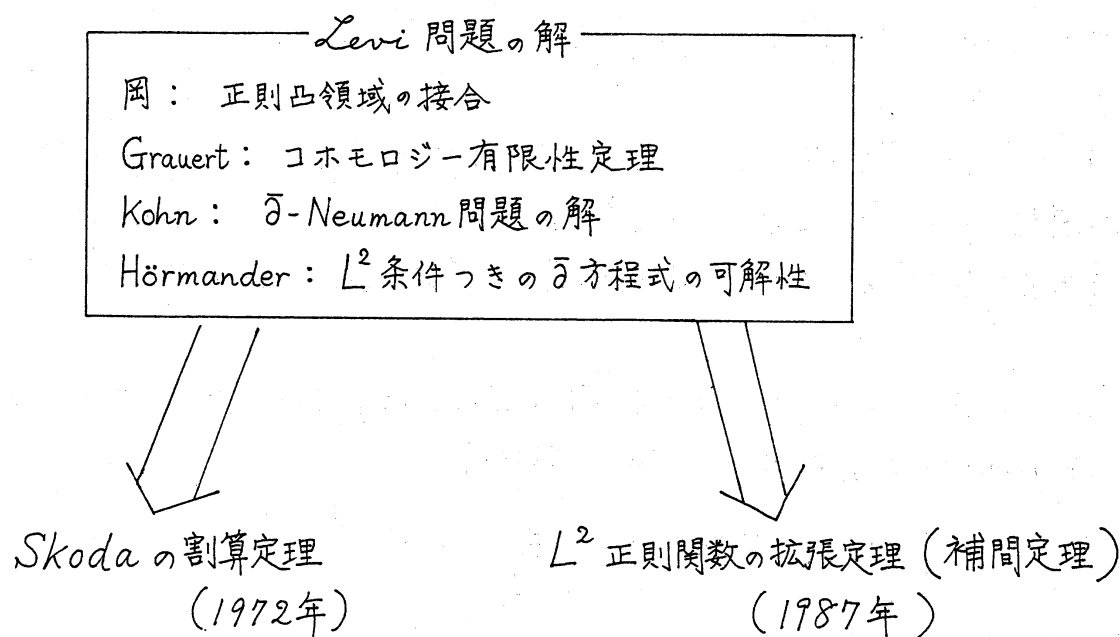 Levi 問題の解
岡： 正則凸領域の接合
Grauert： コホモロジー有限性定理
Kohn： ∂̄-Neumann問題の解
Hörmander： L² 条件つきの ∂̄ 方程式の可解性
Skoda の割算定理
(1972年)
L² 正則関数の拡張定理 (補間定理)
(1987年)